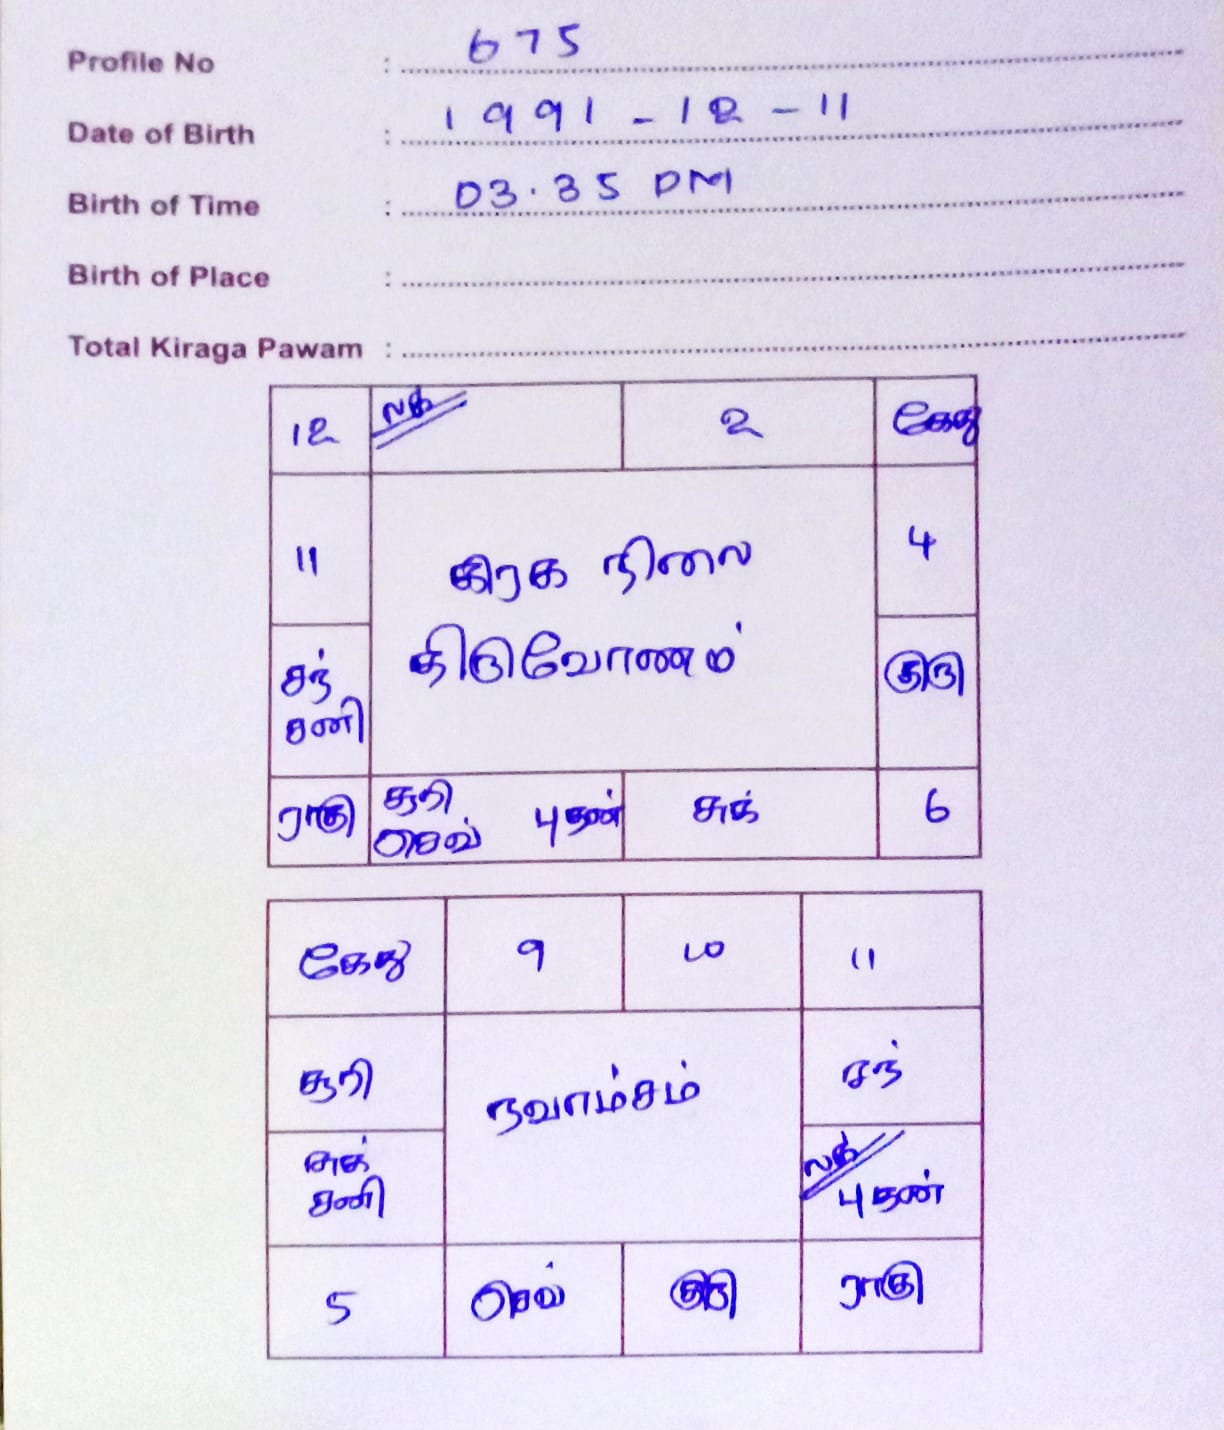 Profile No : 675
Date of Birth : 1991-12-11
Birth of Time : 03.35 PM
Birth of Place :
Total Kiraga Pawam :
12 லக் 2 கேது
11 கிரக நிலை 4
திருவோணம்
சந் குரு
சனி
ராகு சூரி புதன் சுக் 6
செவ்
கேது 9 10 11
சூரி நவாம்சம் சந்
சுக் லக்
சனி புதன்
5 செவ் குரு ராகு